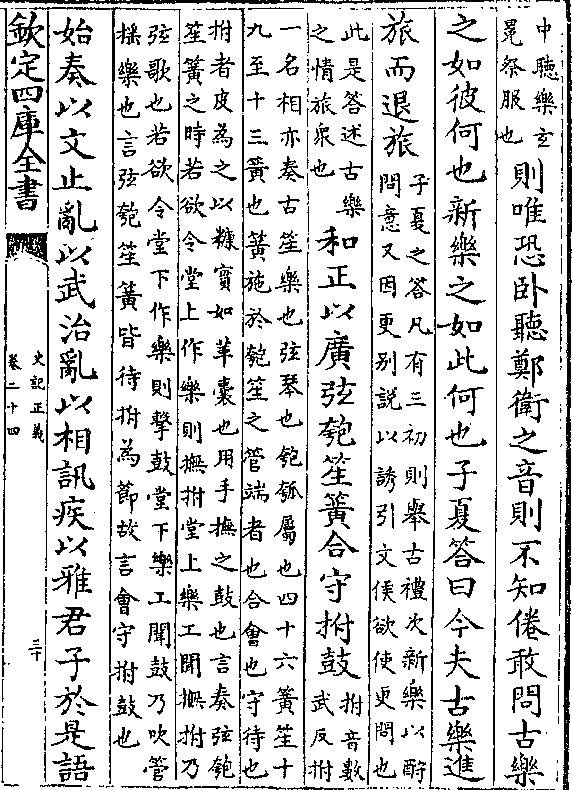 中聽樂玄
冕祭服也
則唯恐卧聽鄭衛之音則不知倦敢問古樂
之如彼何也新樂之如此何也子夏答曰今夫古樂進
旅而退旅
子夏之答凡有三初則舉古禮次新樂以酧
問意又因更别說以誘引文侯欲使更問也
此是答述古樂
之情旅衆也
和正以廣弦匏笙簧合守拊鼓
拊音敷
武反拊
一名相亦奏古笙樂也弦琴也匏瓠屬也四十六簧笙十
九至十三簧也簧施於匏笙之管端者也合會也守待也
拊者皮為之以糠實如革囊也用手撫之鼓也言奏弦匏
笙簧之時若欲令堂上作樂則撫拊堂上樂工聞撫拊乃
弦歌也若欲令堂下作樂則擊鼓堂下樂工聞鼓乃吹管
樂也言弦匏笙簧皆待拊為節故言會守拊鼓也
始奏以文止亂以武治亂以相訊疾以雅君子於是語
欽定四庫全書
史記正義
卷二十四
三十